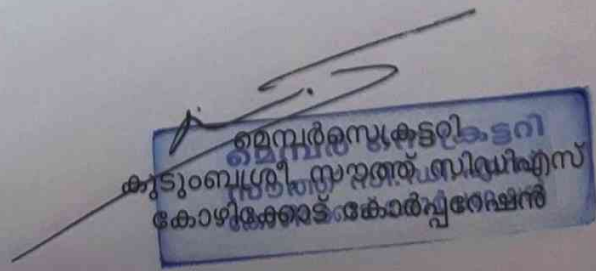 മെമ്പർസെക്രട്ടറി
കുടുംബശ്രീ സൗത്ത് സിഡിഎസ്
കോഴിക്കോട് കോർപ്പറേഷൻ